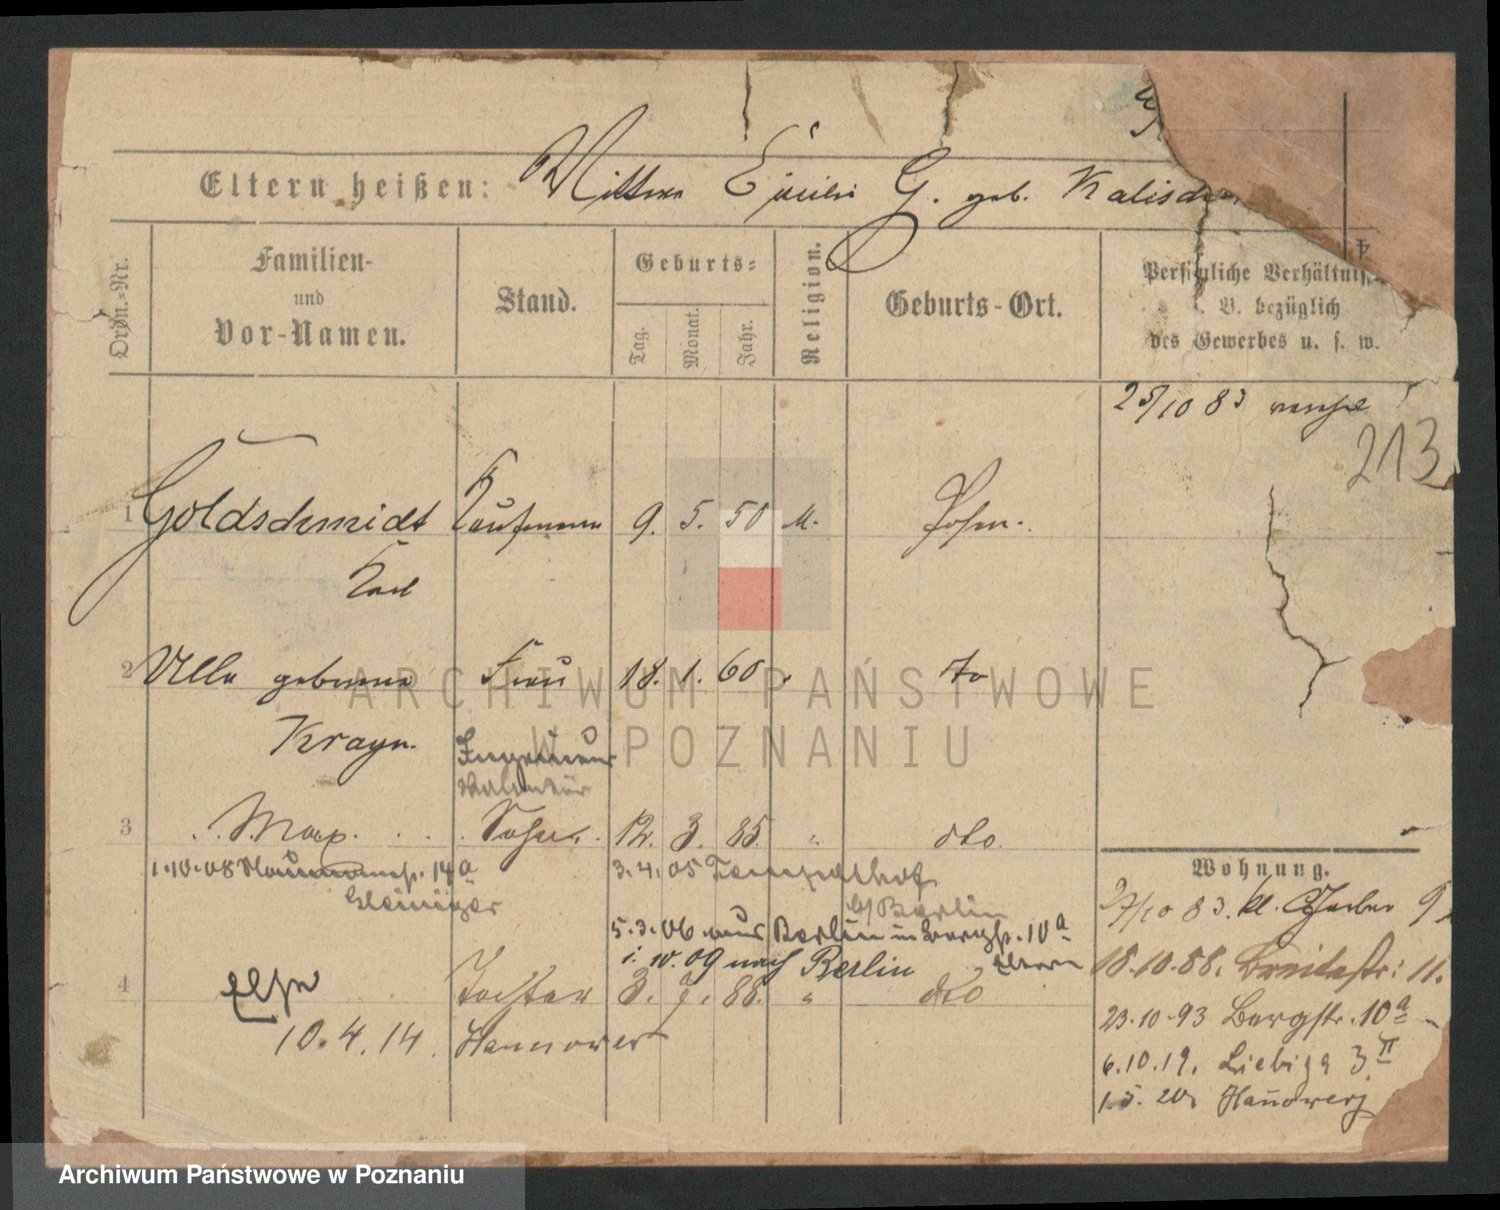 Eltern heißen: Wittwe Cäcilie G. geb. Kalischer
Ordn.=Nr.
Familien-
und
Vor-Namen.
Stand.
Geburts=
Tag.
Monat.
Jahr.
Religion.
Geburts-Ort.
4
Persönliche Verhältnisse
B. bezüglich
des Gewerbes u. s. w.
25/10 83
213
1 Goldschmidt Kaufmann 9. 5. 50 M. Posen.
Karl
2 Ulla geborene Frau 18. 1. 60 " do
Krayn.
Ingenieur
Volontär
3 Max. Sohn. 12. 3. 85. " dto.
Wohnung.
1.10.08 14a
3.4.05 Tempelhof
b/Berlin
27/10 83. kl. Gerber 9
5.3.06 aus Berlin in Bergstr. 10a
Eltern
1. 10. 09 nach Berlin
18.10.88. Breitestr: 11.
4 Else Tochter 3. 7. 88. " dto
23.10.93 Bergstr. 10a
10.4.14. Hannover
6.10.19. Liebigs 3 II
1.5.20. Hannover
ARCHIWUM PAŃSTWOWE
W POZNANIU
Archiwum Państwowe w Poznaniu